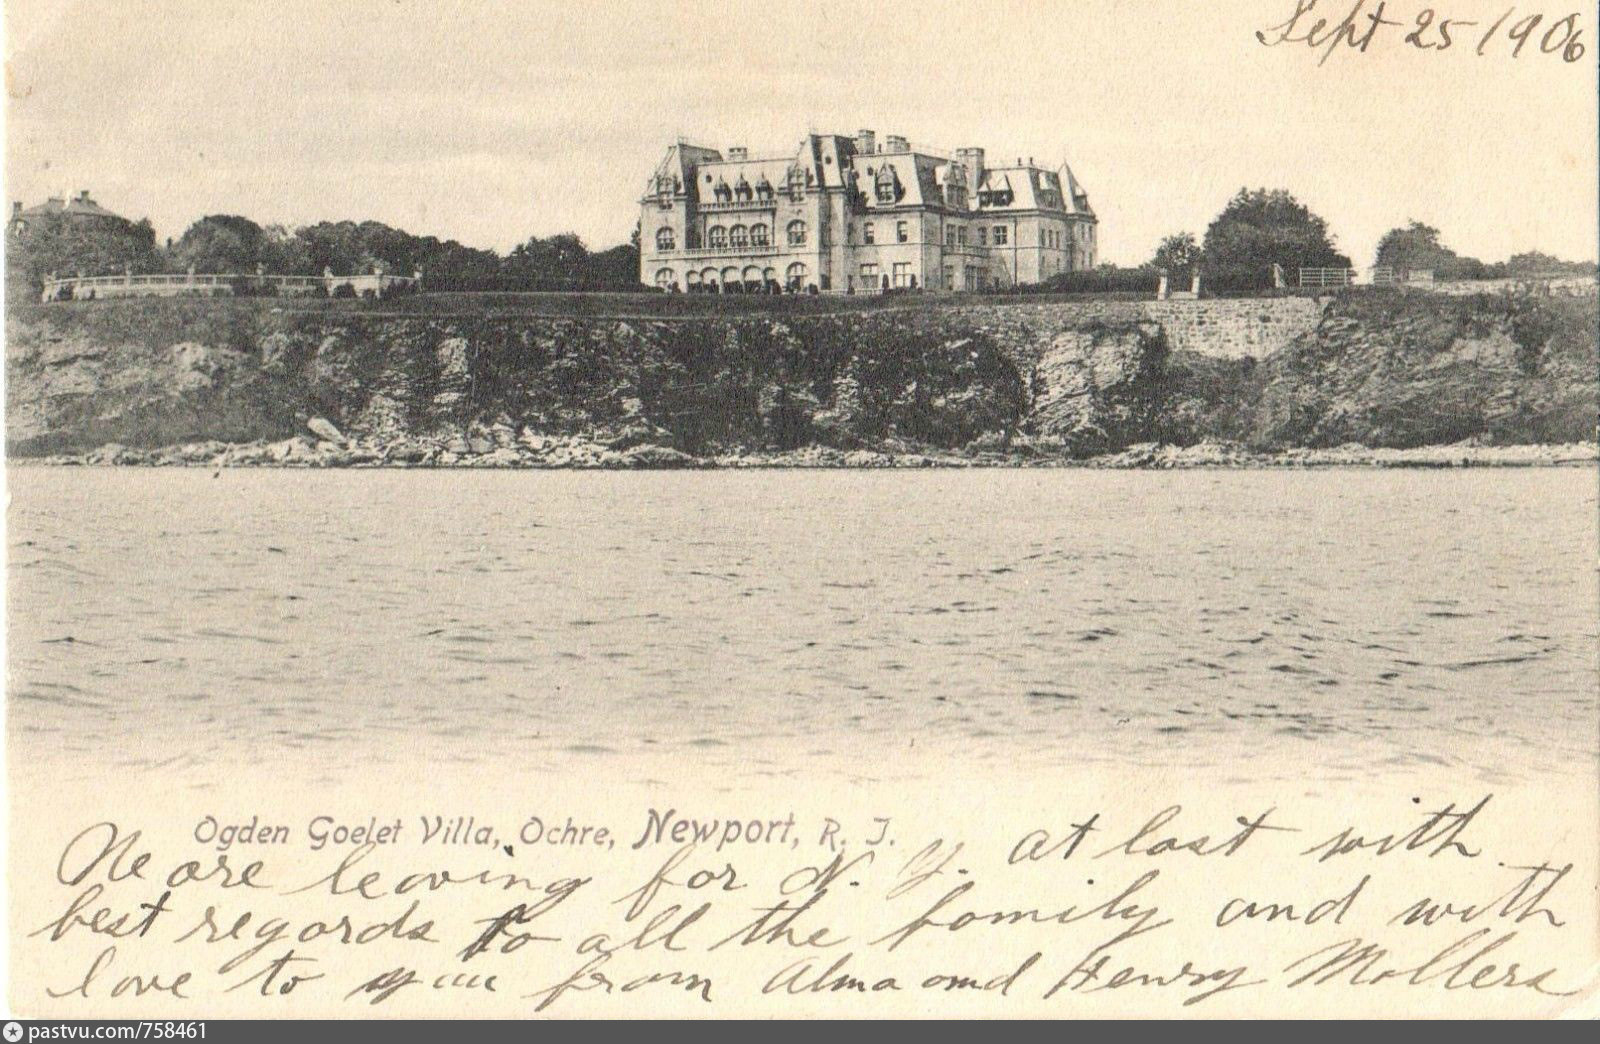 Sept 25/1906
Ogden Goelet Villa, Ochre, Newport, R. I.
We are leaving for N. Y. at last with
best regards to all the family and with
love to you from Alma and Henry Mollers
pastvu.com/758461